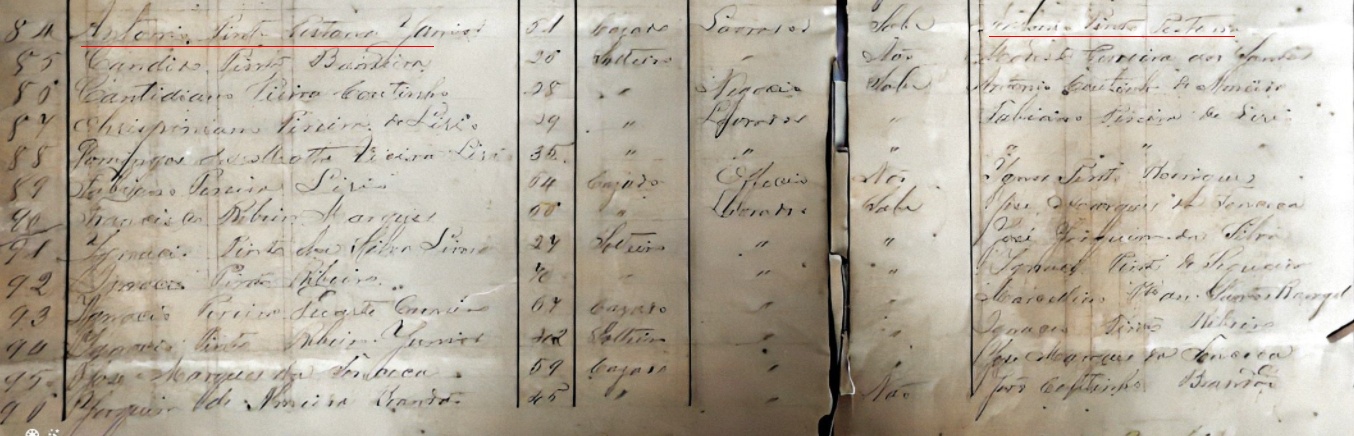 84 Antonio Pinto Pestana Junior 51 Cazado Lavrador Sabe Antonio Pinto Pestana
85 Candido Pinto Bandeira 28 Solteiro " Não Ferreira dos Santos
86 Cantidiano Vieira Coutinho 28 " Negocio Sabe Antonio Coutinho de
87 Chrispiniano Pereira de Liri 29 " Lavrador " Fabiano Pereira de Liri
88 Domingos da Motta Vieira Liri 35 " " " " "
89 Fabiano Pereira Liri 64 Cazado Officio Não Pinto Rodrigues
90 Francisco Ribeiro Marques " Lavrador Sabe José Domingues da Fonseca
91 Ignacio Pinto da Silva 27 Solteiro " " José da Silva
92 Ignacio Pinto Ribeiro " " " Ignacio Pinto de Siqueira
93 Ignacio Pereira Duarte Carneiro 67 Cazado " " Marcellino Rangel
94 Ignacio Pinto Ribeiro Junior 42 Solteiro " " Ignacio Pinto Ribeiro
95 José Marques da Fonseca 59 Cazado " " José Marques da Fonseca
96 de Brandão 45 " " Não João Coutinho Brandão